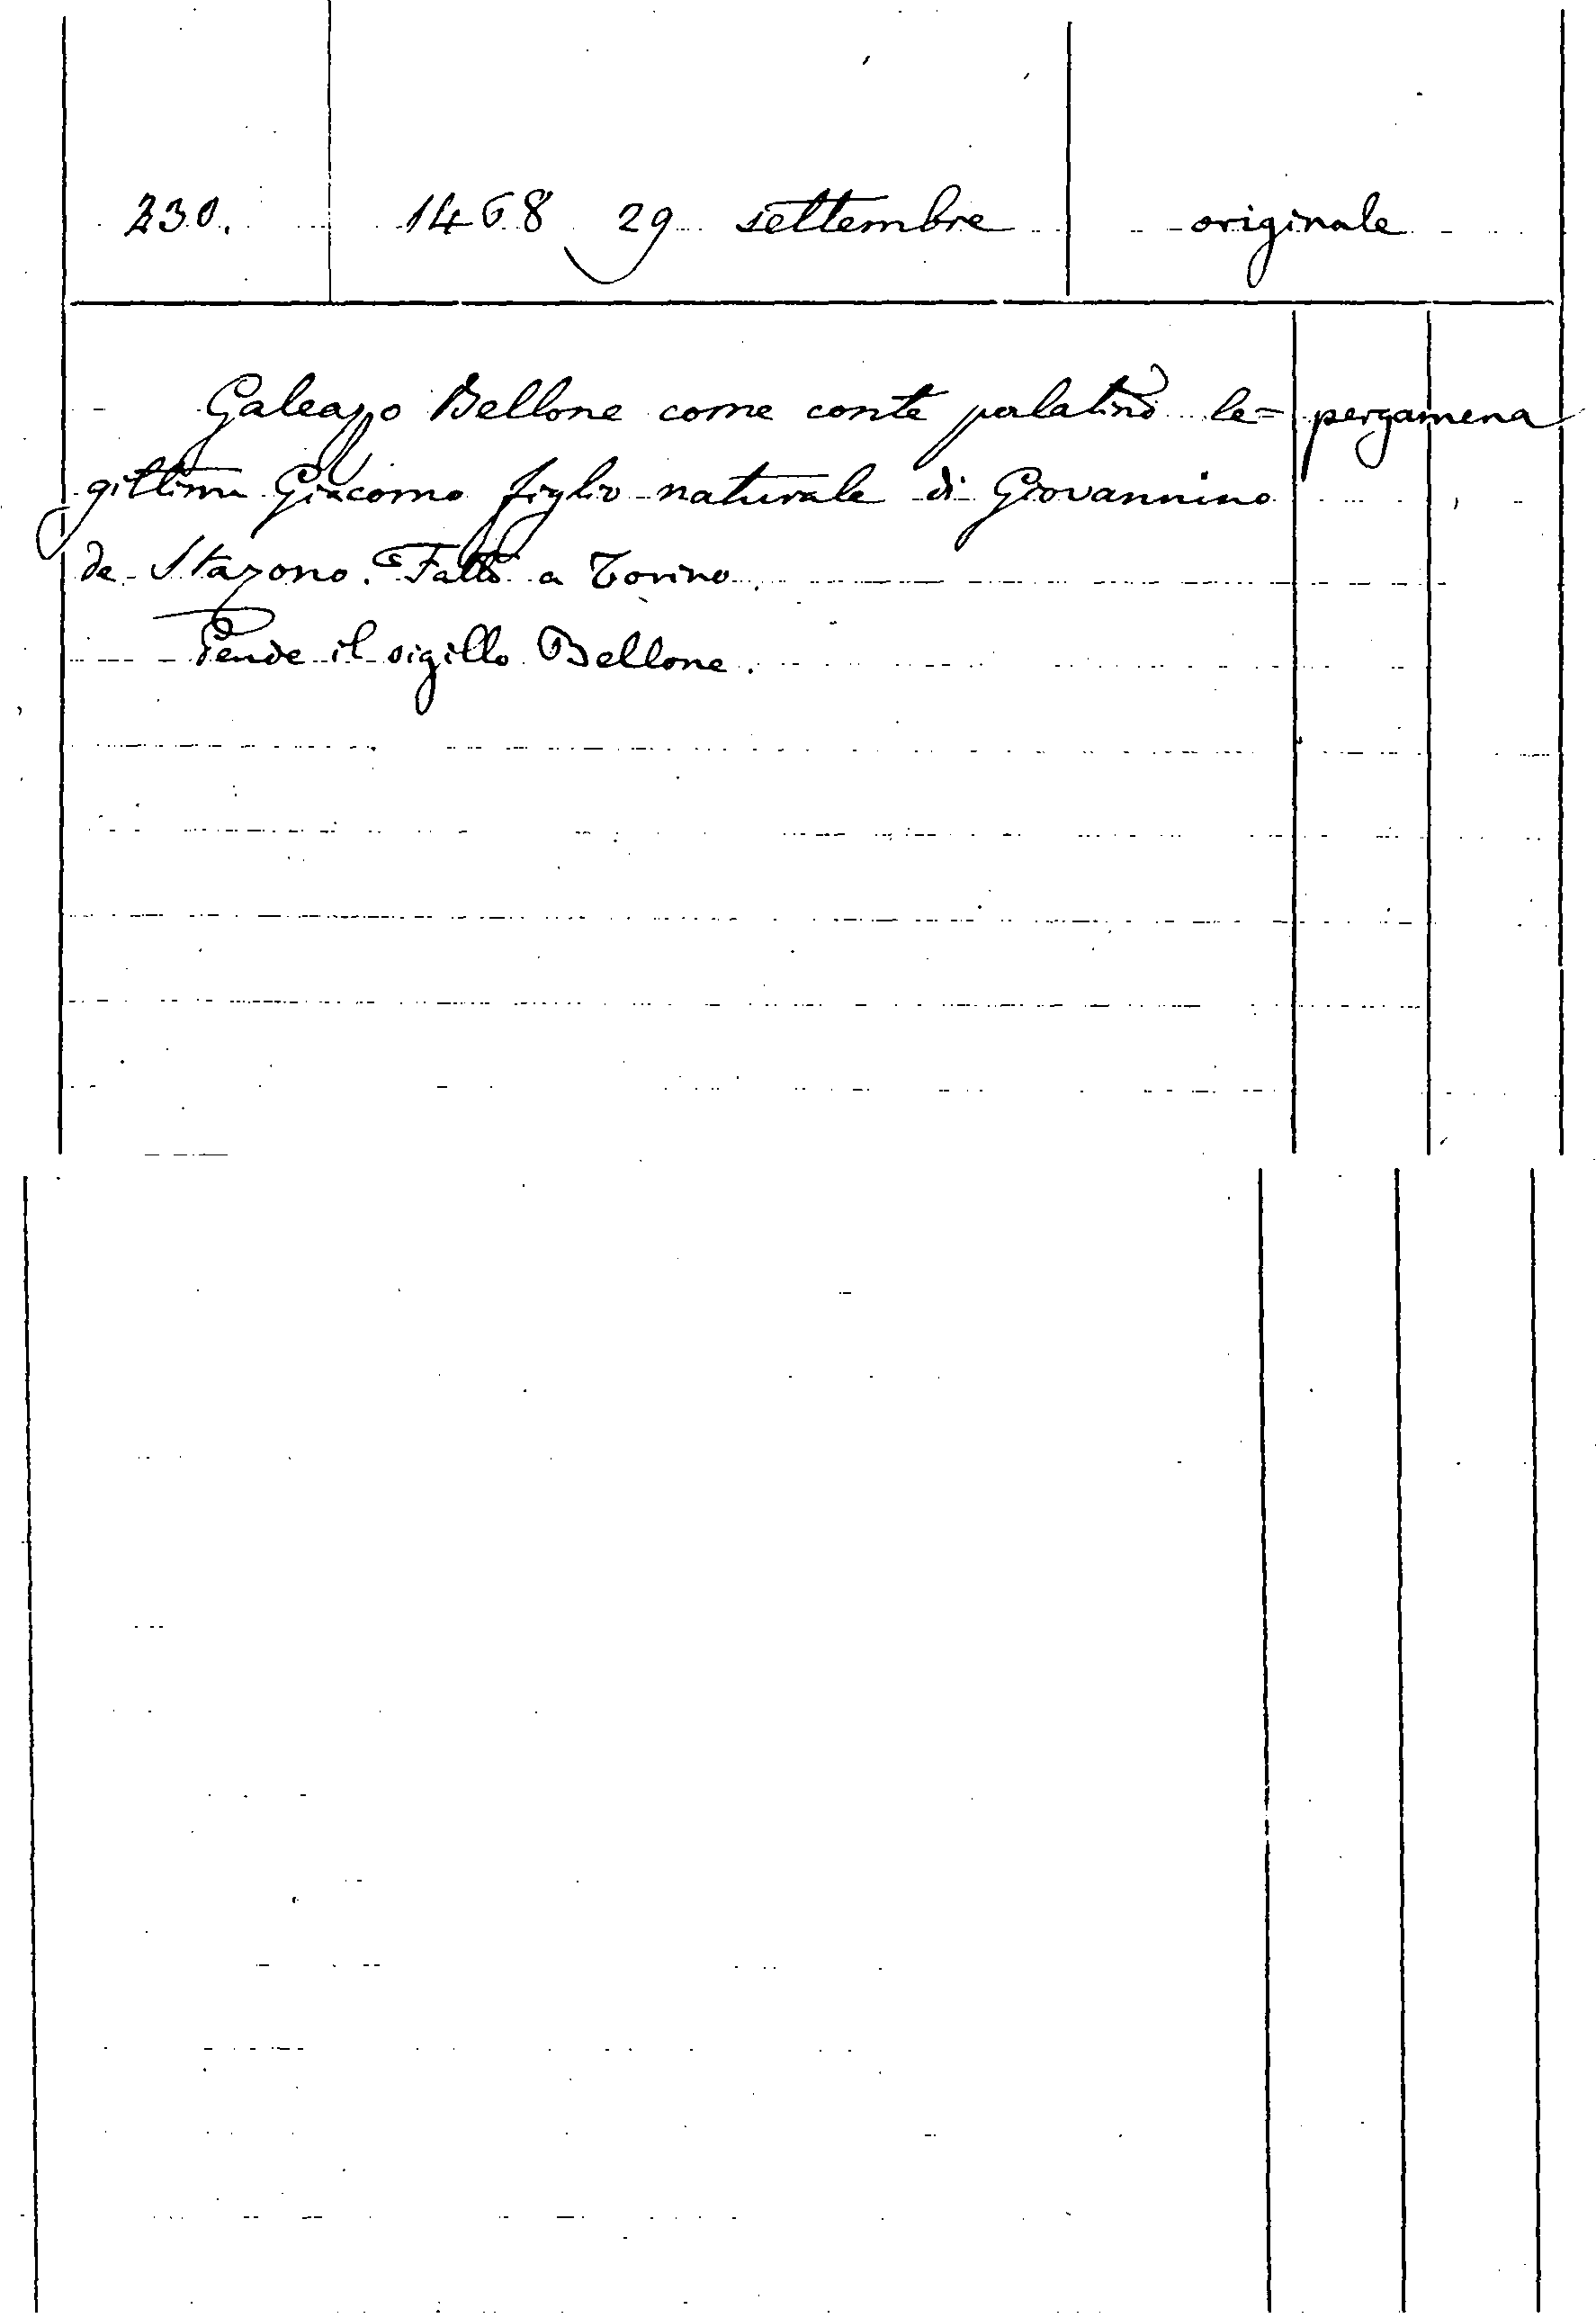 230. 1468 29 settembre originale
Galeazzo Bellone come conte palatino le= pergamena
gittima Giacomo figlio naturale di Giovannino
de Stazono. Fatto a Torino.
Pende il sigillo Bellone.